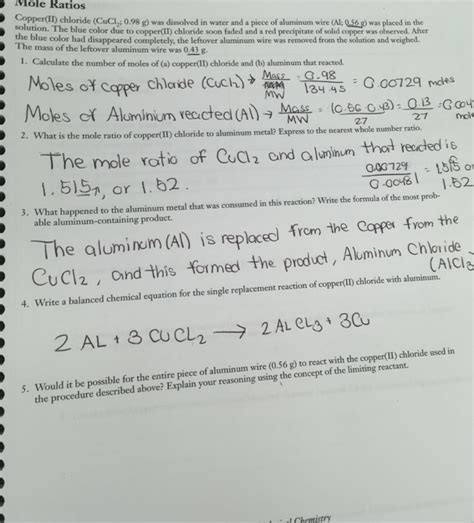 Mole Ratios
Copper(II) chloride (CuCl₂; 0.98 g) was dissolved in water and a piece of aluminum wire (Al; 0.56 g) was placed in the
solution. The blue color due to copper(II) chloride soon faded and a red precipitate of solid copper was observed. After
the blue color had disappeared completely, the leftover aluminum wire was removed from the solution and weighed.
The mass of the leftover aluminum wire was 0.43 g.
1. Calculate the number of moles of (a) copper(II) chloride and (b) aluminum that reacted.
Moles of copper chloride (CuCl₂) → Mass/MW = 0.98/134.45 = 0.00729 moles
Moles of Aluminium reacted (Al) → Mass/MW = (0.56-0.43)/27 = 0.13/27 = 0.004
mole
2. What is the mole ratio of copper(II) chloride to aluminum metal? Express to the nearest whole number ratio.
The mole ratio of CuCl₂ and aluminum that reacted is
1.515, or 1.52.
0.00729/0.0048 = 1.515 or
1.52
3. What happened to the aluminum metal that was consumed in this reaction? Write the formula of the most prob-
able aluminum-containing product.
The aluminum (Al) is replaced from the Copper from the
CuCl₂, and this formed the product, Aluminum Chloride
(AlCl₃
4. Write a balanced chemical equation for the single replacement reaction of copper(II) chloride with aluminum.
2 AL + 3 CUCL₂ → 2 AL CL₃ + 3Cu
5. Would it be possible for the entire piece of aluminum wire (0.56 g) to react with the copper(II) chloride used in
the procedure described above? Explain your reasoning using the concept of the limiting reactant.
Chemistry